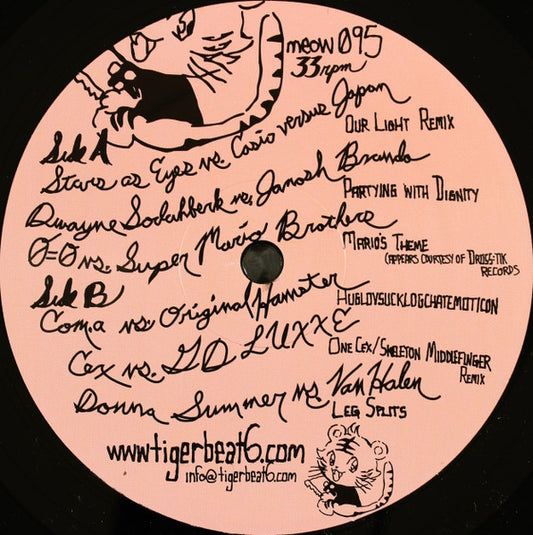 meow 095
33rpm
Side A
Stars as Eyes vs. Casio versus Japan
Our Light Remix
Dwayne Sodahberk vs. Janosh Brando
Partying with Dignity
0=0 vs. Super Mario Brothers
Mario's Theme
(appears courtesy of Drugg-tik
Records
Side B
Com.a vs. Original Hamster
Huglovsucklogchatemoticon
Cex vs. GD LUXXE
One Cex/Skeleton Middlefinger
Remix
Donna Summer vs. Van Halen
Leg Splits
www.tigerbeat6.com
info@tigerbeat6.com